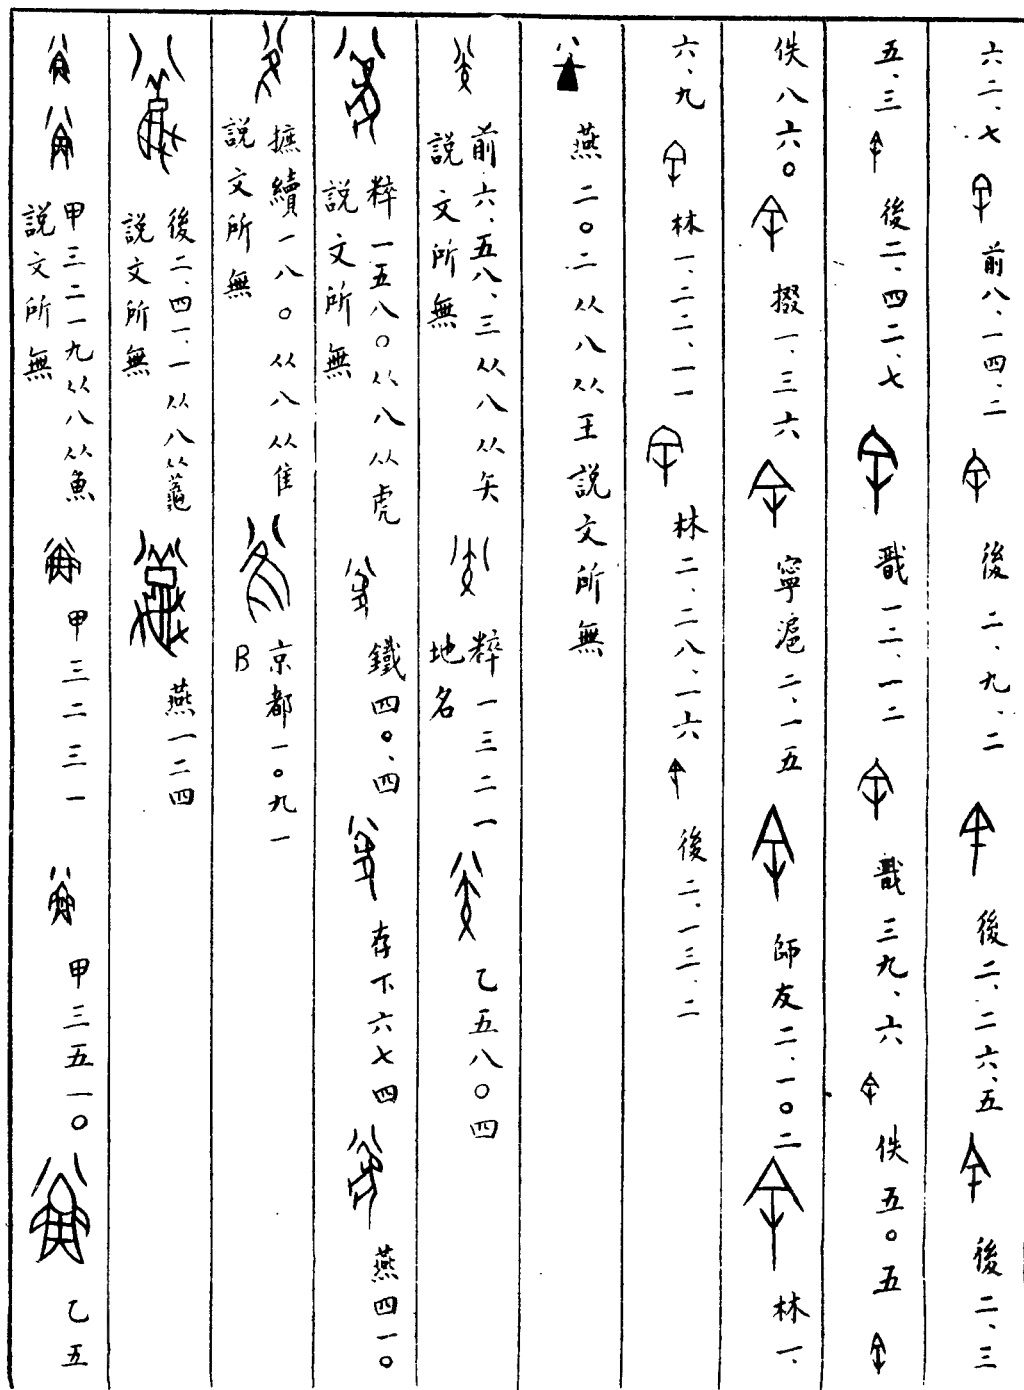 六二、七 前八、一四、二 後二、九、二 後二、二六、五 後二、三
五、三 後二、四二、七 戬一二、一二 戬三九、六 佚五〇五
佚八六〇 掇一、三六 寧滬二、一五 師友二、一〇二 林一、
六、九 林一、二二、一一 林二、二八、一六 後二、一三、二
燕二〇二 从八从王 説文所無
前六、五八、三 从八从矢 説文所無 粹一三二一 地名 乙五八〇四
粹一五八〇 从八从虎 説文所無 鐵四〇、四 存下六七四 燕四一〇
摭續一八〇 从八从隹 説文所無 京都一〇九一B
後二、四一、一 从八从 説文所無 燕一二四
甲三二一九 从八从魚 説文所無 甲三二三一 甲三五一〇 乙五